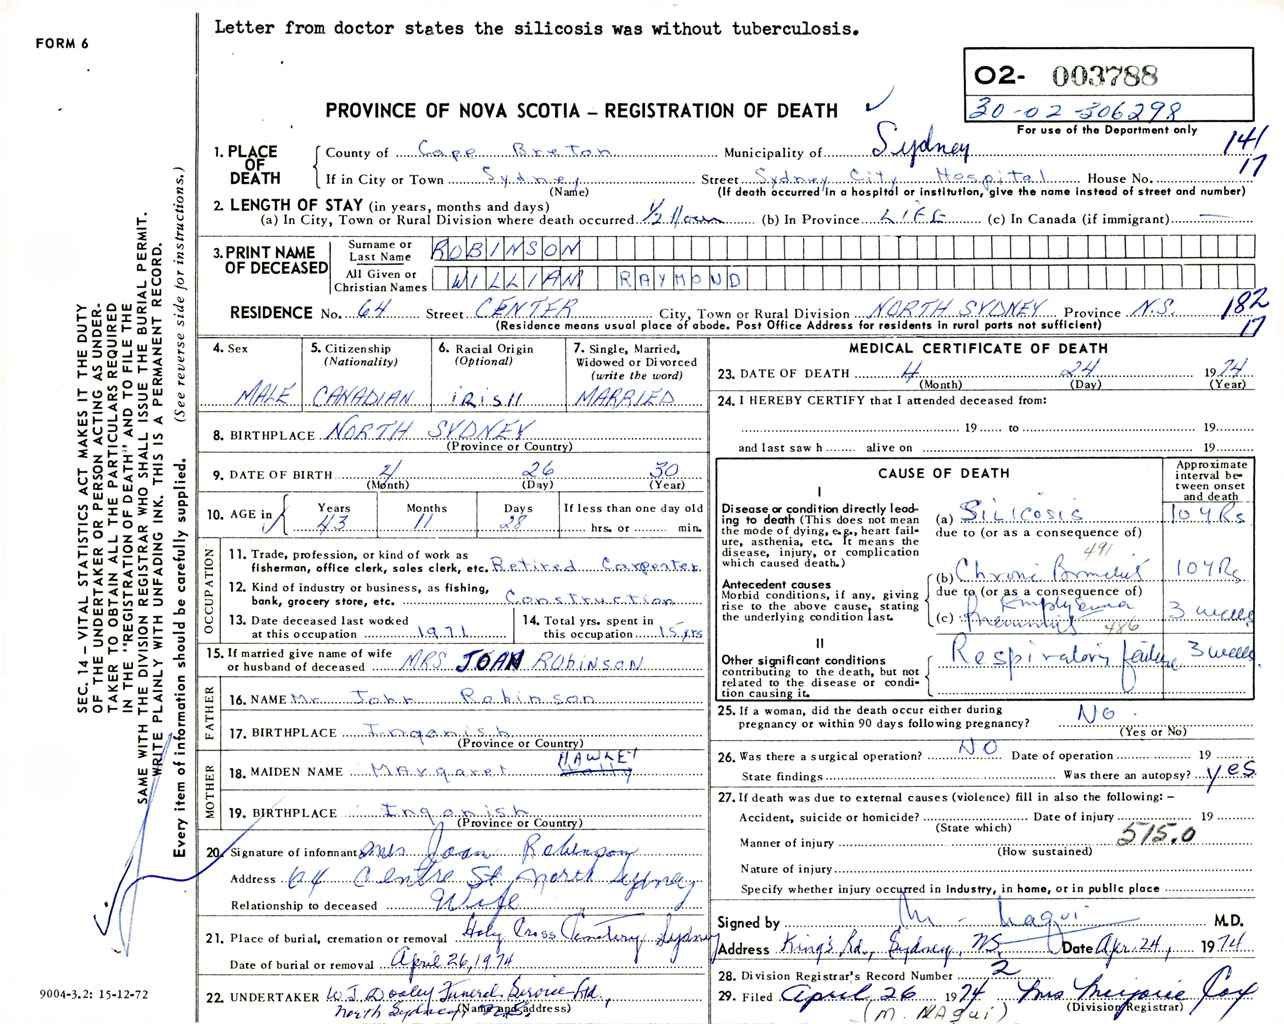 Letter from doctor states the silicosis was without tuberculosis.
FORM 6
O2- 003788
30-02-306298
For use of the Department only
PROVINCE OF NOVA SCOTIA – REGISTRATION OF DEATH
1. PLACE OF DEATH
County of Cape Breton Municipality of Sydney 141
17
If in City or Town Sydney Street Sydney City Hospital House No.
(Name) (If death occurred in a hospital or institution, give the name instead of street and number)
2. LENGTH OF STAY (in years, months and days)
(a) In City, Town or Rural Division where death occurred 1/2 Hour (b) In Province LIFE (c) In Canada (if immigrant) —
3. PRINT NAME OF DECEASED
Surname or Last Name ROBINSON
All Given or Christian Names WILLIAM RAYMOND
RESIDENCE No. 64 Street CENTER City, Town or Rural Division NORTH SYDNEY Province N.S. 182
17
(Residence means usual place of abode. Post Office Address for residents in rural parts not sufficient)
4. Sex
MALE
5. Citizenship
(Nationality)
CANADIAN
6. Racial Origin
(Optional)
IRISH
7. Single, Married,
Widowed or Divorced
(write the word)
MARRIED
8. BIRTHPLACE NORTH SYDNEY
(Province or Country)
9. DATE OF BIRTH 4 26 30
(Month) (Day) (Year)
10. AGE in
Years Months Days If less than one day old
43 11 28 hrs. or min.
OCCUPATION
11. Trade, profession, or kind of work as
fisherman, office clerk, sales clerk, etc. Retired Carpenter
12. Kind of industry or business, as fishing,
bank, grocery store, etc. Construction
13. Date deceased last worked
at this occupation 1971
14. Total yrs. spent in
this occupation 15 yrs
15. If married give name of wife
or husband of deceased MRS JOAN ROBINSON
FATHER
16. NAME Mr. John Robinson
17. BIRTHPLACE Inganish
(Province or Country)
MOTHER
18. MAIDEN NAME Margaret HAWLEY
19. BIRTHPLACE Ingonish
(Province or Country)
20. Signature of informant Mrs Joan Robinson
Address 64 Centre St North Sydney
Relationship to deceased Wife
21. Place of burial, cremation or removal Holy Cross Cemetery Sydney
Date of burial or removal April 26, 1974
22. UNDERTAKER W J Dooley Funeral Service Ltd,
North Sydney, N.S.
(Name and address)
MEDICAL CERTIFICATE OF DEATH
23. DATE OF DEATH 4 24 1974
(Month) (Day) (Year)
24. I HEREBY CERTIFY that I attended deceased from:
19 to 19
and last saw h alive on 19
CAUSE OF DEATH
Approximate interval between onset and death
I
Disease or condition directly leading to death (This does not mean the mode of dying, e.g., heart failure, asthenia, etc. It means the disease, injury, or complication which caused death.)
(a) Silicosis 10 YRs
due to (or as a consequence of)
491
Antecedent causes
Morbid conditions, if any, giving rise to the above cause, stating the underlying condition last.
(b) Chronic Bronchitis 10 YRs
due to (or as a consequence of)
Emphysema
(c) Pneumonitis 486 3 weeks
II
Other significant conditions contributing to the death, but not related to the disease or condition causing it.
Respiratory failure 3 weeks
25. If a woman, did the death occur either during
pregnancy or within 90 days following pregnancy? NO
(Yes or No)
26. Was there a surgical operation? NO Date of operation 19
State findings Was there an autopsy? yes
27. If death was due to external causes (violence) fill in also the following: –
Accident, suicide or homicide? Date of injury 19
(State which)
515.0
Manner of injury
(How sustained)
Nature of injury
Specify whether injury occurred in Industry, in home, or in public place
Signed by M. Naqui M.D.
Address King's Rd., Sydney, NS. Date Apr. 24, 1974
28. Division Registrar's Record Number 2
29. Filed April 26 1974 Mrs Marjorie Cox
(M. NAQUI) (Division Registrar)
SEC. 14 – VITAL STATISTICS ACT MAKES IT THE DUTY
OF THE UNDERTAKER OR PERSON ACTING AS UNDER-
TAKER TO OBTAIN ALL THE PARTICULARS REQUIRED
IN THE "REGISTRATION OF DEATH" AND TO FILE THE
SAME WITH THE DIVISION REGISTRAR WHO SHALL ISSUE THE BURIAL PERMIT.
WRITE PLAINLY WITH UNFADING INK. THIS IS A PERMANENT RECORD.
Every item of information should be carefully supplied. (See reverse side for instructions.)
9004-3.2: 15-12-72